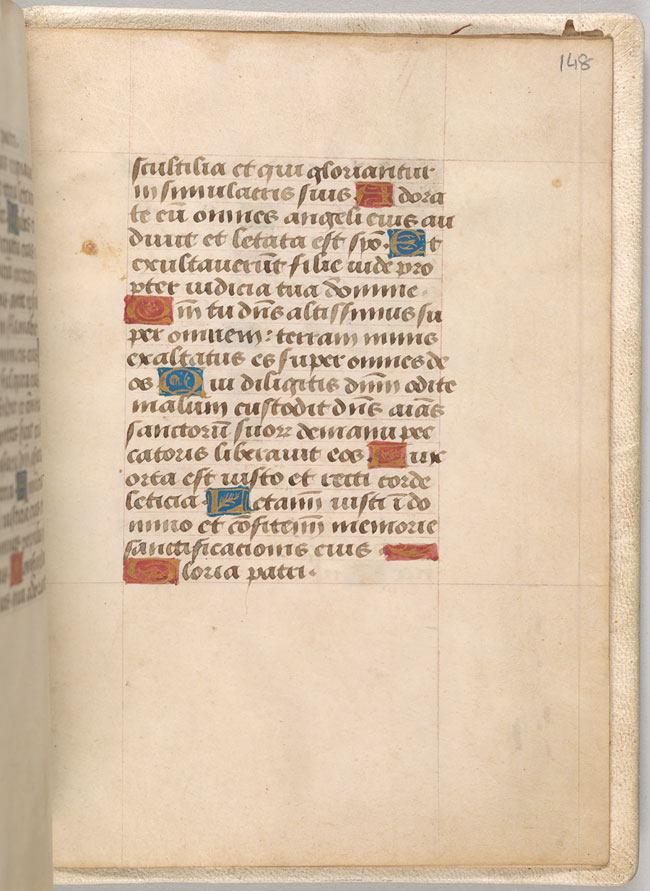 148
scultilia et qui gloriantur
in simulacris suis. Adora
te eū omnes angeli eius au
diuit et letata est syō. Et
exultauerūt filie iude pro
pter iudicia tua domine.
Qm̄ tu dn̄s altissimus su
per omnem: terram nimis
exaltatus es super omnes de
os Qui diligitis dnm̄ odite
malum custodit dn̄s aīas
sanctorū suorꝝ de manu pec
catoris liberauit eos. Lux
orta est iusto et recti corde
leticia. Letamī iusti ī do
mino et cōfitemī memorie
sanctificacionis eius
Gloria patri.